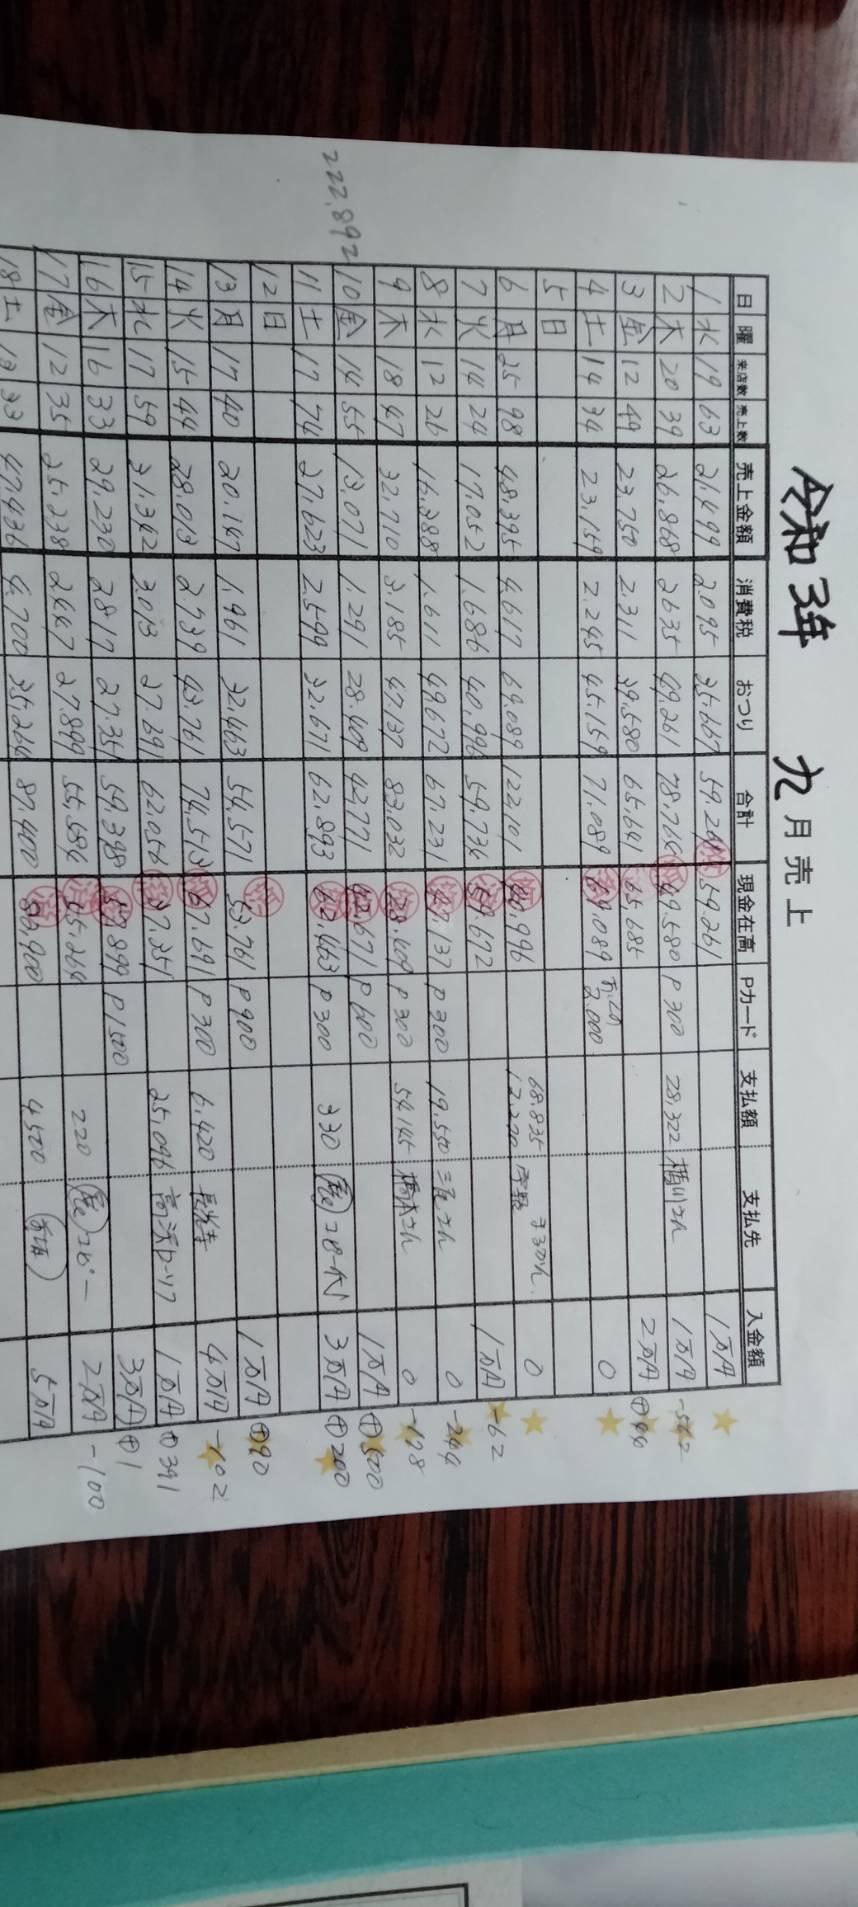 令和3年 九月売上
日 曜 来店数 売上数 売上金額 消費税 おつり 合計 現金在高 Pカード 支払額 支払先 入金額
1 水 19 63 21.499 2.095 35.667 59.261 59.261 1万円
2 木 20 39 26.868 2635 49.261 78.764 49.580 P300 28.322 1万円 -562
3 金 12 49 23.750 2.311 39.580 65.641 65.685 2万円
4 土 14 34 23.159 2.245 45.159 71.089 69.089 2.000 0
5 日
6 月 25 98 48.395 4.617 69.089 122.101 40.996 68.835 12.220 0
7 火 14 24 17.052 1.686 40.996 59.734 59.672 1万円 -62
8 水 12 26 16.288 1.611 49.672 67.231 47.137 P300 19.550 0
9 木 18 47 32.710 3.185 47.137 83.032 28.409 P300 54.145 橋本さん 0 -128
222,892
10 金 14 55 13.071 1.291 28.409 42.771 42.671 P600 1万円 ⊕500
11 土 17 74 27.623 2.599 32.671 62.893 62.463 P300 330 3万円 ⊕200
12 日
13 月 17 40 20.147 1.961 32.463 54.571 53.761 P900 1万円 ⊕90
14 火 15 44 28.013 2.739 43.761 74.513 67.691 P300 6.420 4万円 -102
15 水 17 59 31.342 3.013 27.691 62.056 37.351 25.096 1万円 ⊕391
16 木 16 33 29.230 2817 27.351 59.398 57.899 P1500 3万円 ⊕1
17 金 12 35 25.238 2447 27.899 55.584 55.264 220 2万円 -100
18 土 33 47.436 4.700 35.264 87.400 4.500 5万円